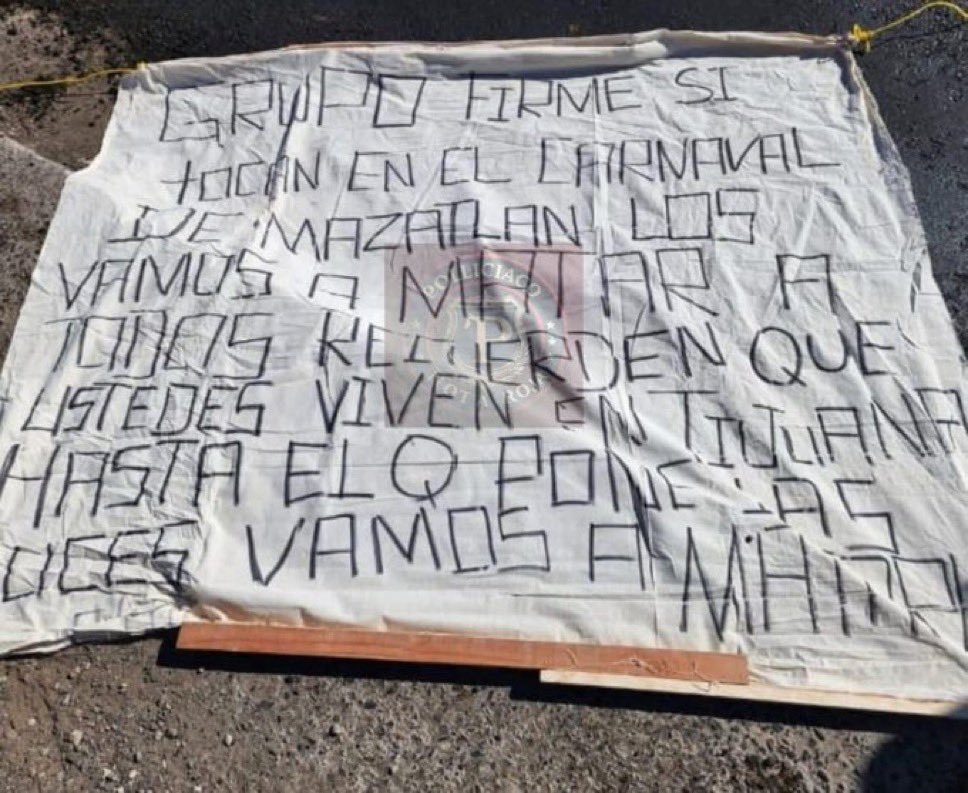 GRUPO FIRME SI
TOCAN EN EL CARNAVAL
DE MAZATLAN LOS
VAMOS A MATAR A
TODOS RECUERDEN QUE
USTEDES VIVEN EN TIJUANA
HASTA EL Q PONE LAS
UCES VAMOS A MATAR
POLICIACO